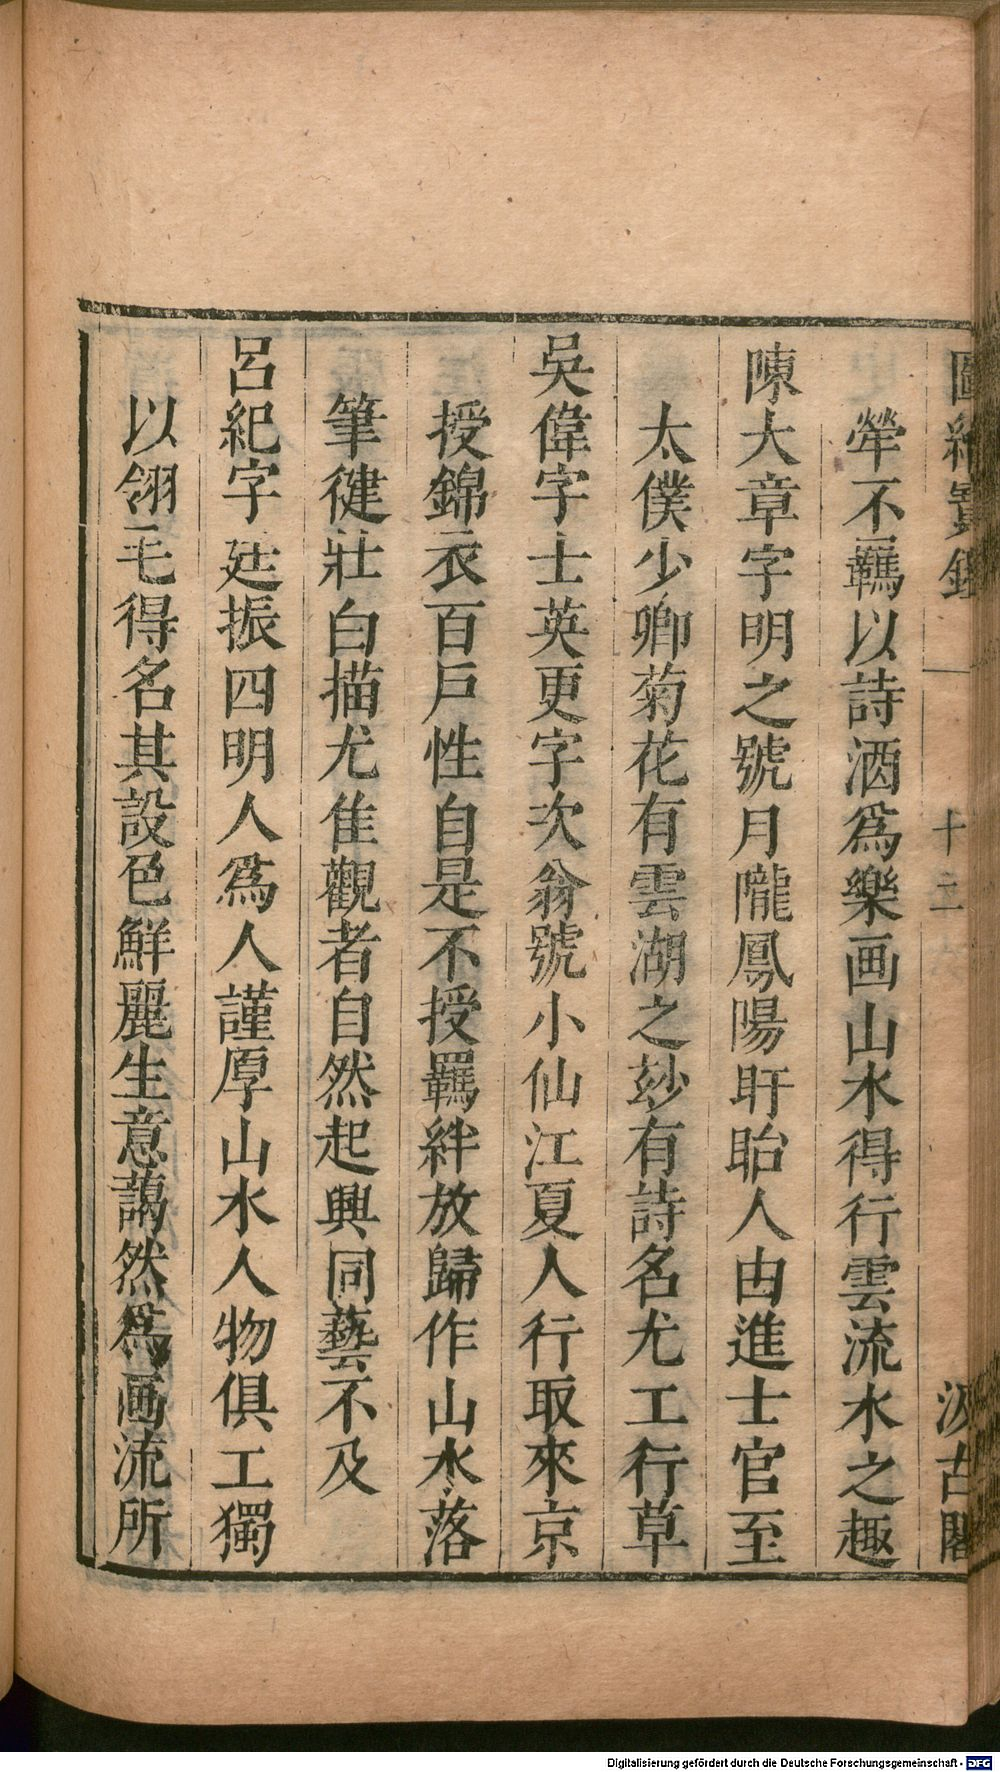 圖繪寶鑑
十二
汲古閣
犖不羈以詩酒為樂画山水得行雲流水之趣
陳大章字明之號月隴鳳陽盱眙人由進士官至
太僕少卿菊花有雲湖之玅有詩名尤工行草
吳偉字士英更字次翁號小仙江夏人行取來京
授錦衣百戶性自是不授羈絆放歸作山水落
筆徤壯白描尤佳觀者自然起興同藝不及
呂紀字廷振四明人為人謹厚山水人物俱工獨
以翎毛得名其設色鮮麗生意藹然為画流所
Digitalisierung gefördert durch die Deutsche Forschungsgemeinschaft - DFG